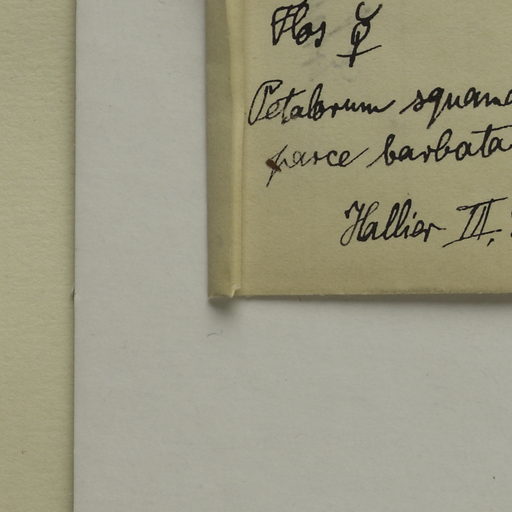 Flos ☿
Petalorum squama
parce barbata
Hallier III,